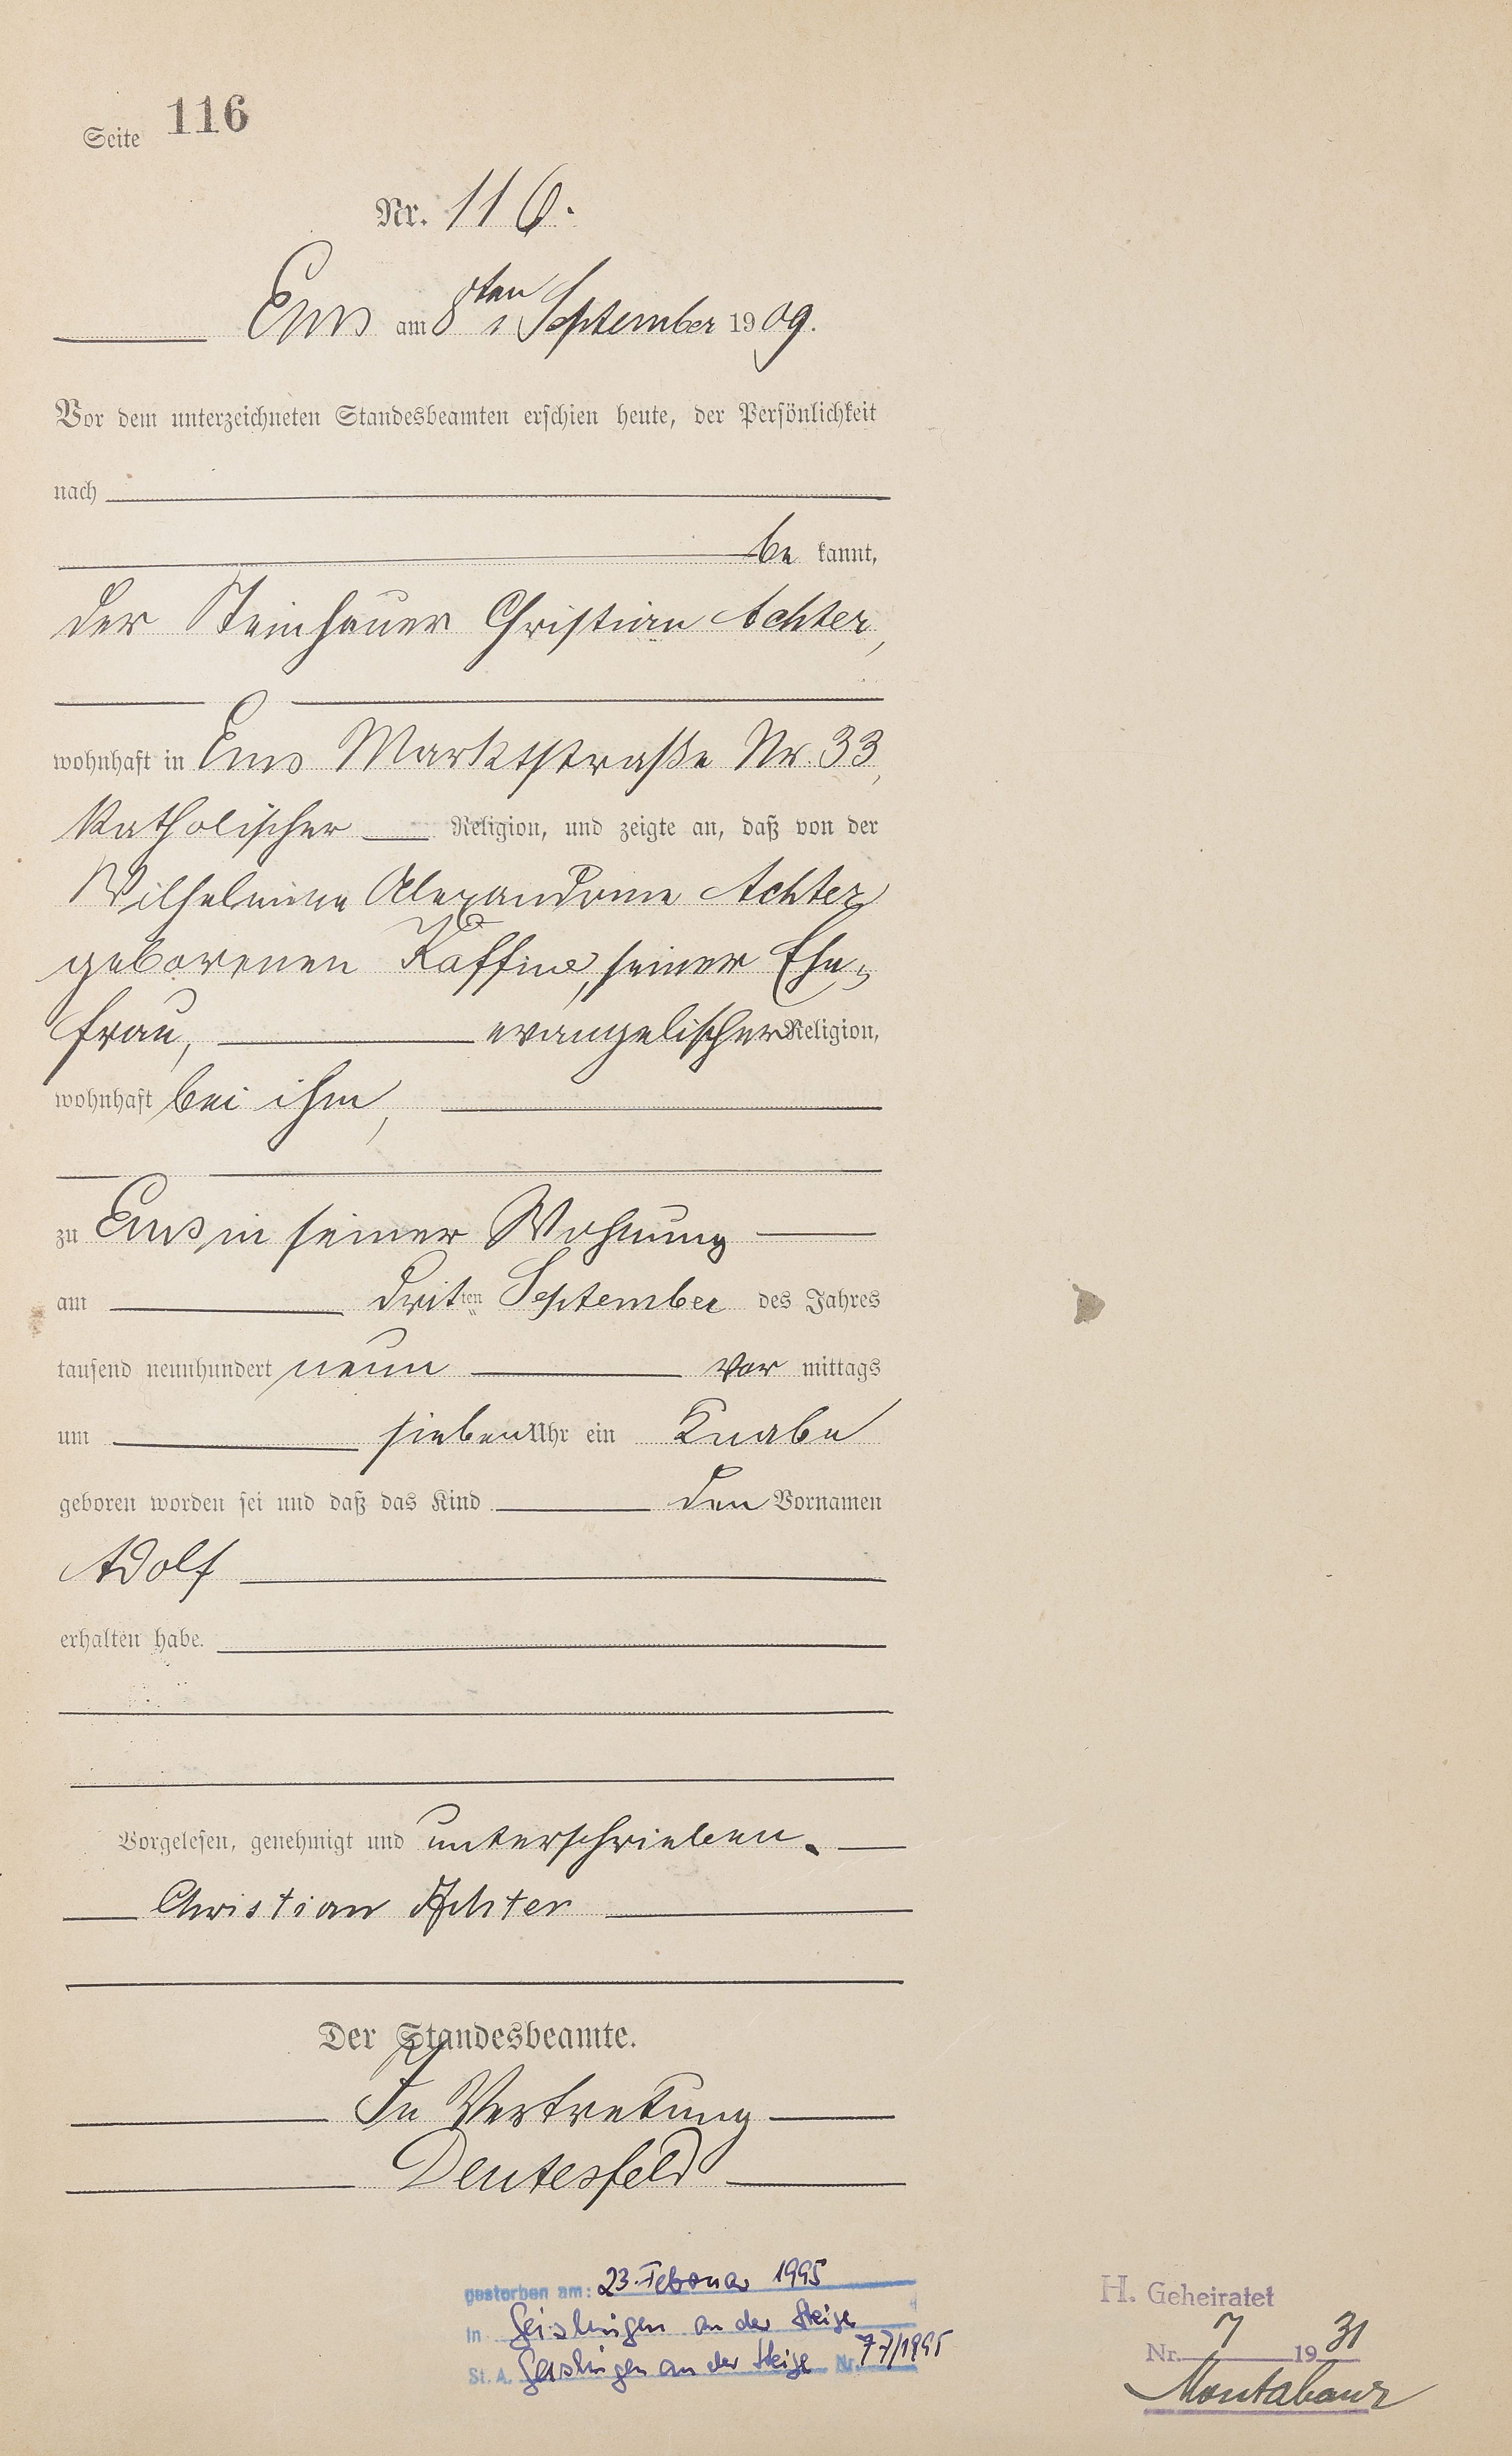 Seite 116
Nr. 116.
Ems am 8ten September 1909.
Vor dem unterzeichneten Standesbeamten erschien heute, der Persönlichkeit
nach
be kannt,
der Steinhauer Christian Achter,
wohnhaft in Ems Marktstraße Nr. 33,
katholischer Religion, und zeigte an, daß von der
Wilhelmine Alexandrine Achter
geborenen Kaffine, seiner Ehe-
frau, evangelischer Religion,
wohnhaft bei ihm,
zu Ems in seiner Wohnung
am dritten September des Jahres
tausend neunhundert neun vor mittags
um sieben Uhr ein Knabe
geboren worden sei und daß das Kind den Vornamen
Adolf
erhalten habe.
Vorgelesen, genehmigt und unterschrieben.
Christian Achter
Der Standesbeamte.
In Vertretung
Deutesfeld
gestorben am: 23. Februar 1995
in Geislingen an der Steige
St. A. Geislingen an der Steige Nr. 77/1995
H. Geheiratet
Nr. 7 1931
Montabaur